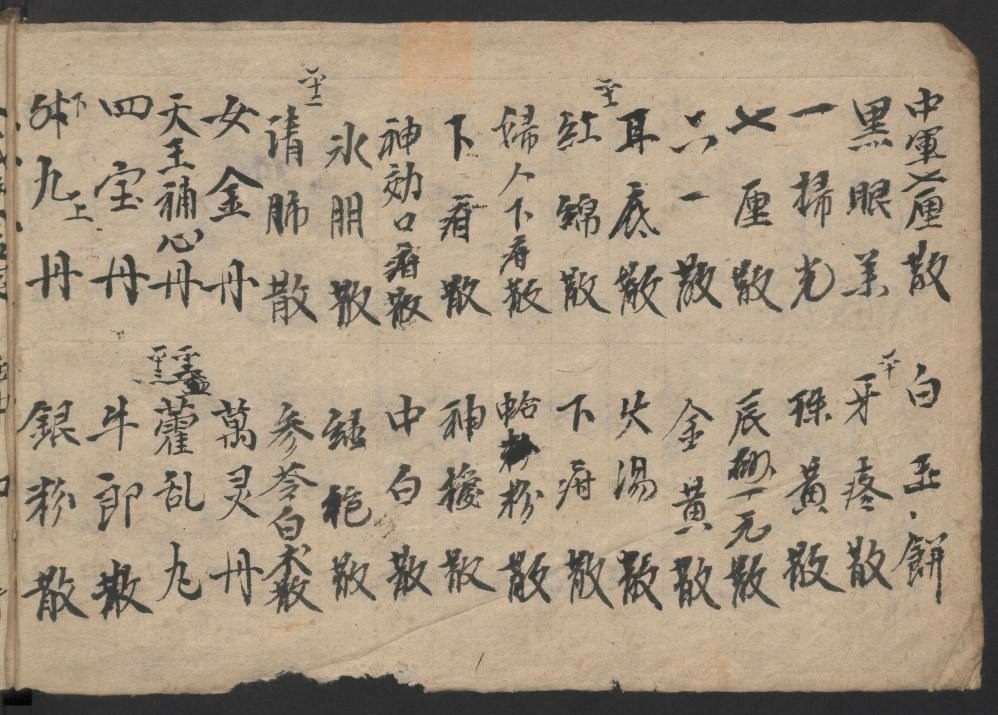 中軍七厘散
黑眼羊
一掃光
七厘散
六一散
耳底散
紅綿散
婦人下疳散
下疳散
神効口疳散
氷朋散
清肺散
女金丹
天王補心丹
四宝丹
九丹
白玉餅
牙疼散
珠黃散
辰砂一元散
金黃散
火湯散
下疳散
蛤粉散
神擾散
中白散
散
參苓白朮散
萬灵丹
藿乱九
牛郎散
銀粉散